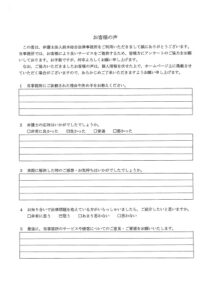 お客様の声
この度は、弁護士法人鈴木総合法律事務所をご利用いただきまして誠にありがとうございます。
当事務所では、お客様により良いサービスをご提供するため、皆様方にアンケートのご協力をお願い
しております。お手数ですが、何卒よろしくお願い申し上げます。
なお、ご協力いただきましたお客様の声は、個人情報を伏せた上で、ホームページ上に掲載させて
いただく場合がございますので、あらかじめご了承いただけますようお願い申し上げます。
1 当事務所にご依頼された理由や決め手をお教えください。
2 弁護士の応対はいかがでしたでしょうか。
□非常に良かった □良かった □普通 □悪かった
3 実際に依頼した時のご感想・お気持ちはいかがでしたでしょうか。
4 お知り合いで法律問題を抱えている方がいらっしゃいましたら、ご紹介したいと思いますか。
□非常に思う □思う □あまり思わない □思わない
5 最後に、当事務所のサービスや接客についてのご意見・ご要望をお願いいたします。